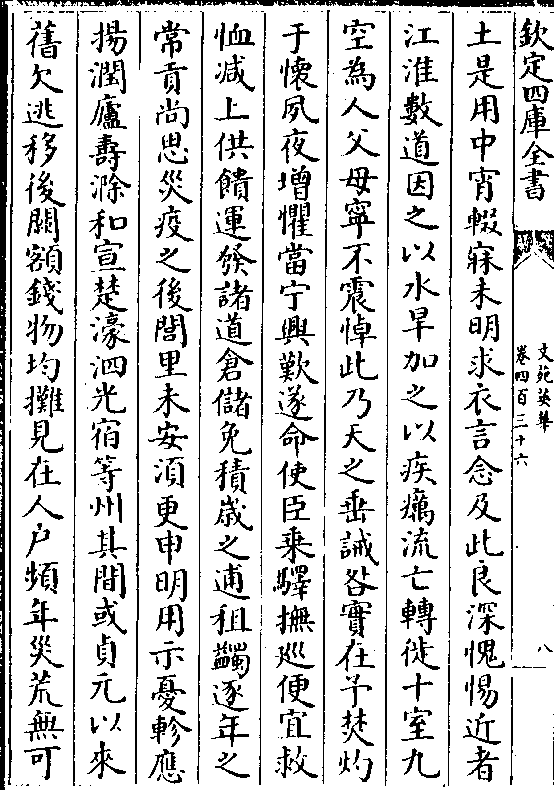 欽定四庫全書
文苑英華
卷四百三十六
八
土是用中宵輟寐未明求衣言念及此良深愧惕近者
江淮數道因之以水旱加之以疾癘流亡轉徙十室九
空為人父母寧不震悼此乃天之垂誡咎實在予焚灼
于懷夙夜增懼當宁興歎遂命使臣乗驛撫巡便宜救
恤減上供饋運發諸道倉儲免積歲之逋租蠲逐年之
常貢尚思災疫之後閭里未安湏更申明用示憂軫應
揚潤廬壽滁和宣楚濠泗光宿等州其間或貞元以來
舊欠逃移後闕額錢物均攤見在人户頻年災荒無可